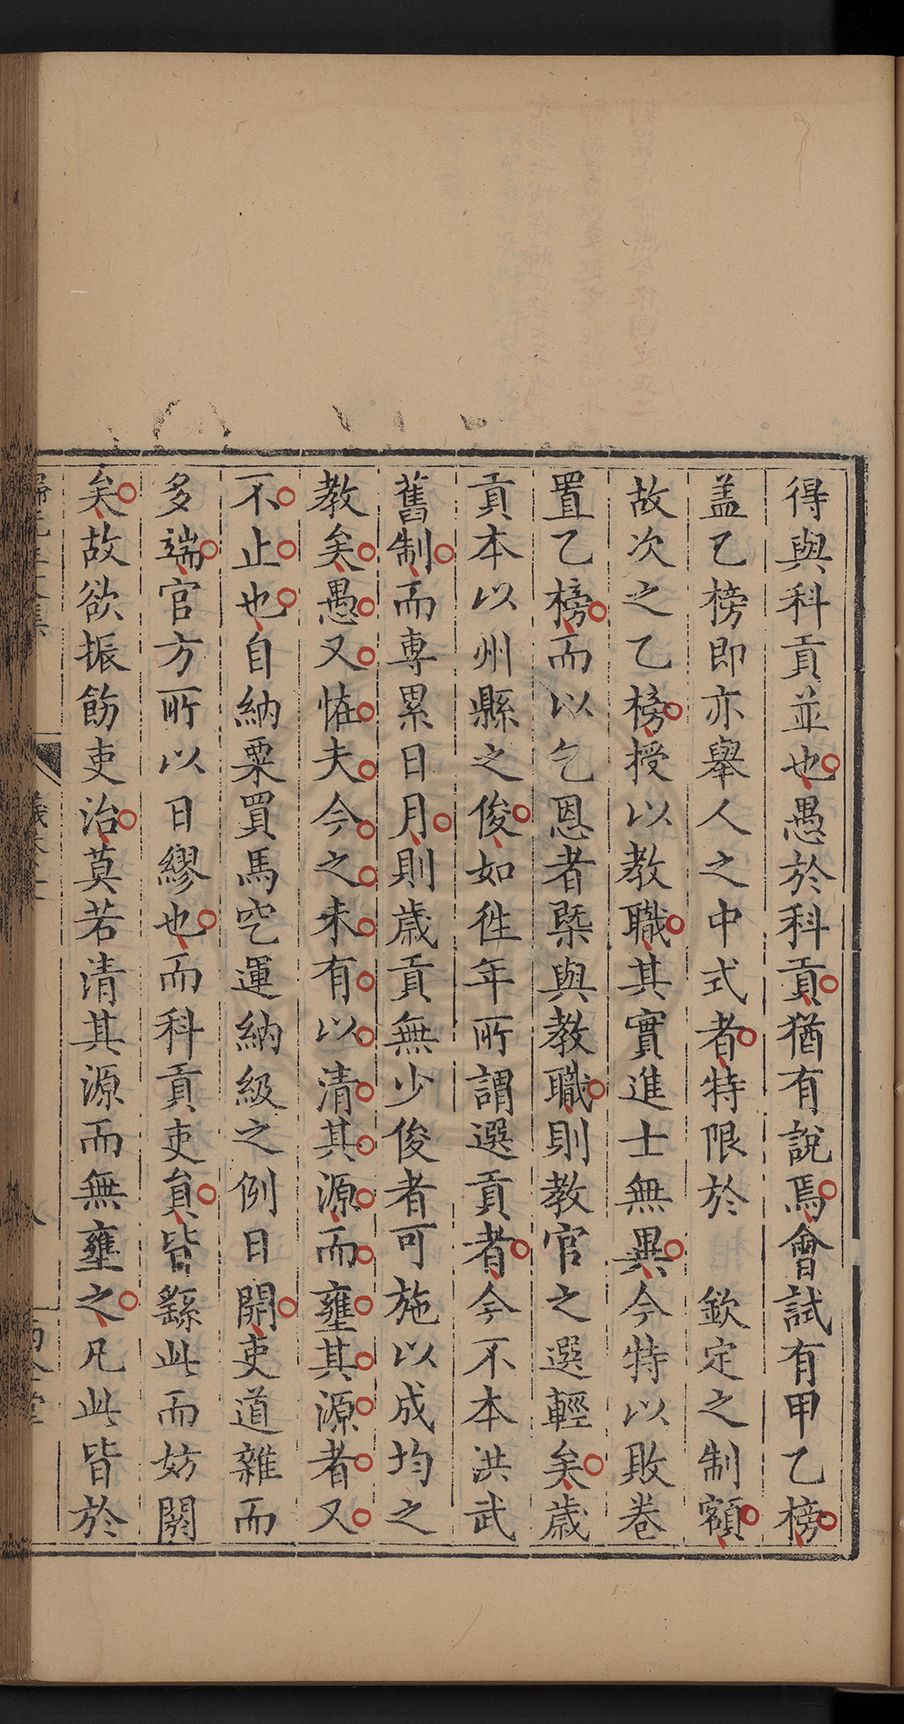 得與科貢並也愚於科貢猶有說焉會試有甲乙榜
盖乙榜即亦舉人之中式者特限於　欽定之制額
故次之乙榜授以教職其實進士無異今特以敗卷
置乙榜而以乞恩者槩與教職則教官之選輕矣歲
貢本以州縣之俊如徃年所謂選貢者今不本洪武
舊制而專累日月則歲貢無少俊者可施以成均之
教矣愚又恠夫今之未有以清其源而壅其源者又
不止也自納粟買馬空運納級之例日開吏道雜而
多端官方所以日繆也而科貢吏員皆繇此而妨閼
矣故欲振飭吏治莫若清其源而無壅之凡此皆於